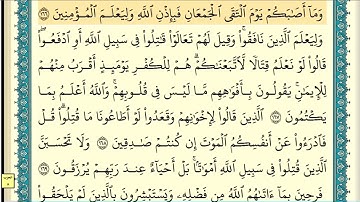 وَمَآ أَصَٰبَكُمْ يَوْمَ ٱلْتَقَى ٱلْجَمْعَانِ فَبِإِذْنِ ٱللَّهِ وَلِيَعْلَمَ ٱلْمُؤْمِنِينَ ١٦٦
وَلِيَعْلَمَ ٱلَّذِينَ نَافَقُوا۟ وَقِيلَ لَهُمْ تَعَالَوْا۟ قَٰتِلُوا۟ فِى سَبِيلِ ٱللَّهِ أَوِ ٱدْفَعُوا۟
قَالُوا۟ لَوْ نَعْلَمُ قِتَالًا لَّٱتَّبَعْنَٰكُمْ هُمْ لِلْكُفْرِ يَوْمَئِذٍ أَقْرَبُ مِنْهُمْ
لِلْإِيمَٰنِ يَقُولُونَ بِأَفْوَٰهِهِم مَّا لَيْسَ فِى قُلُوبِهِمْ وَٱللَّهُ أَعْلَمُ بِمَا
يَكْتُمُونَ ١٦٧ ٱلَّذِينَ قَالُوا۟ لِإِخْوَٰنِهِمْ وَقَعَدُوا۟ لَوْ أَطَاعُونَا مَا قُتِلُوا۟ قُلْ
فَٱدْرَءُوا۟ عَنْ أَنفُسِكُمُ ٱلْمَوْتَ إِن كُنتُمْ صَٰدِقِينَ ١٦٨ وَلَا تَحْسَبَنَّ
ٱلَّذِينَ قُتِلُوا۟ فِى سَبِيلِ ٱللَّهِ أَمْوَٰتًۢا بَلْ أَحْيَآءٌ عِندَ رَبِّهِمْ يُرْزَقُونَ ١٦٩
فَرِحِينَ بِمَآ ءَاتَىٰهُمُ ٱللَّهُ مِن فَضْلِهِۦ وَيَسْتَبْشِرُونَ بِٱلَّذِينَ لَمْ يَلْحَقُوا۟